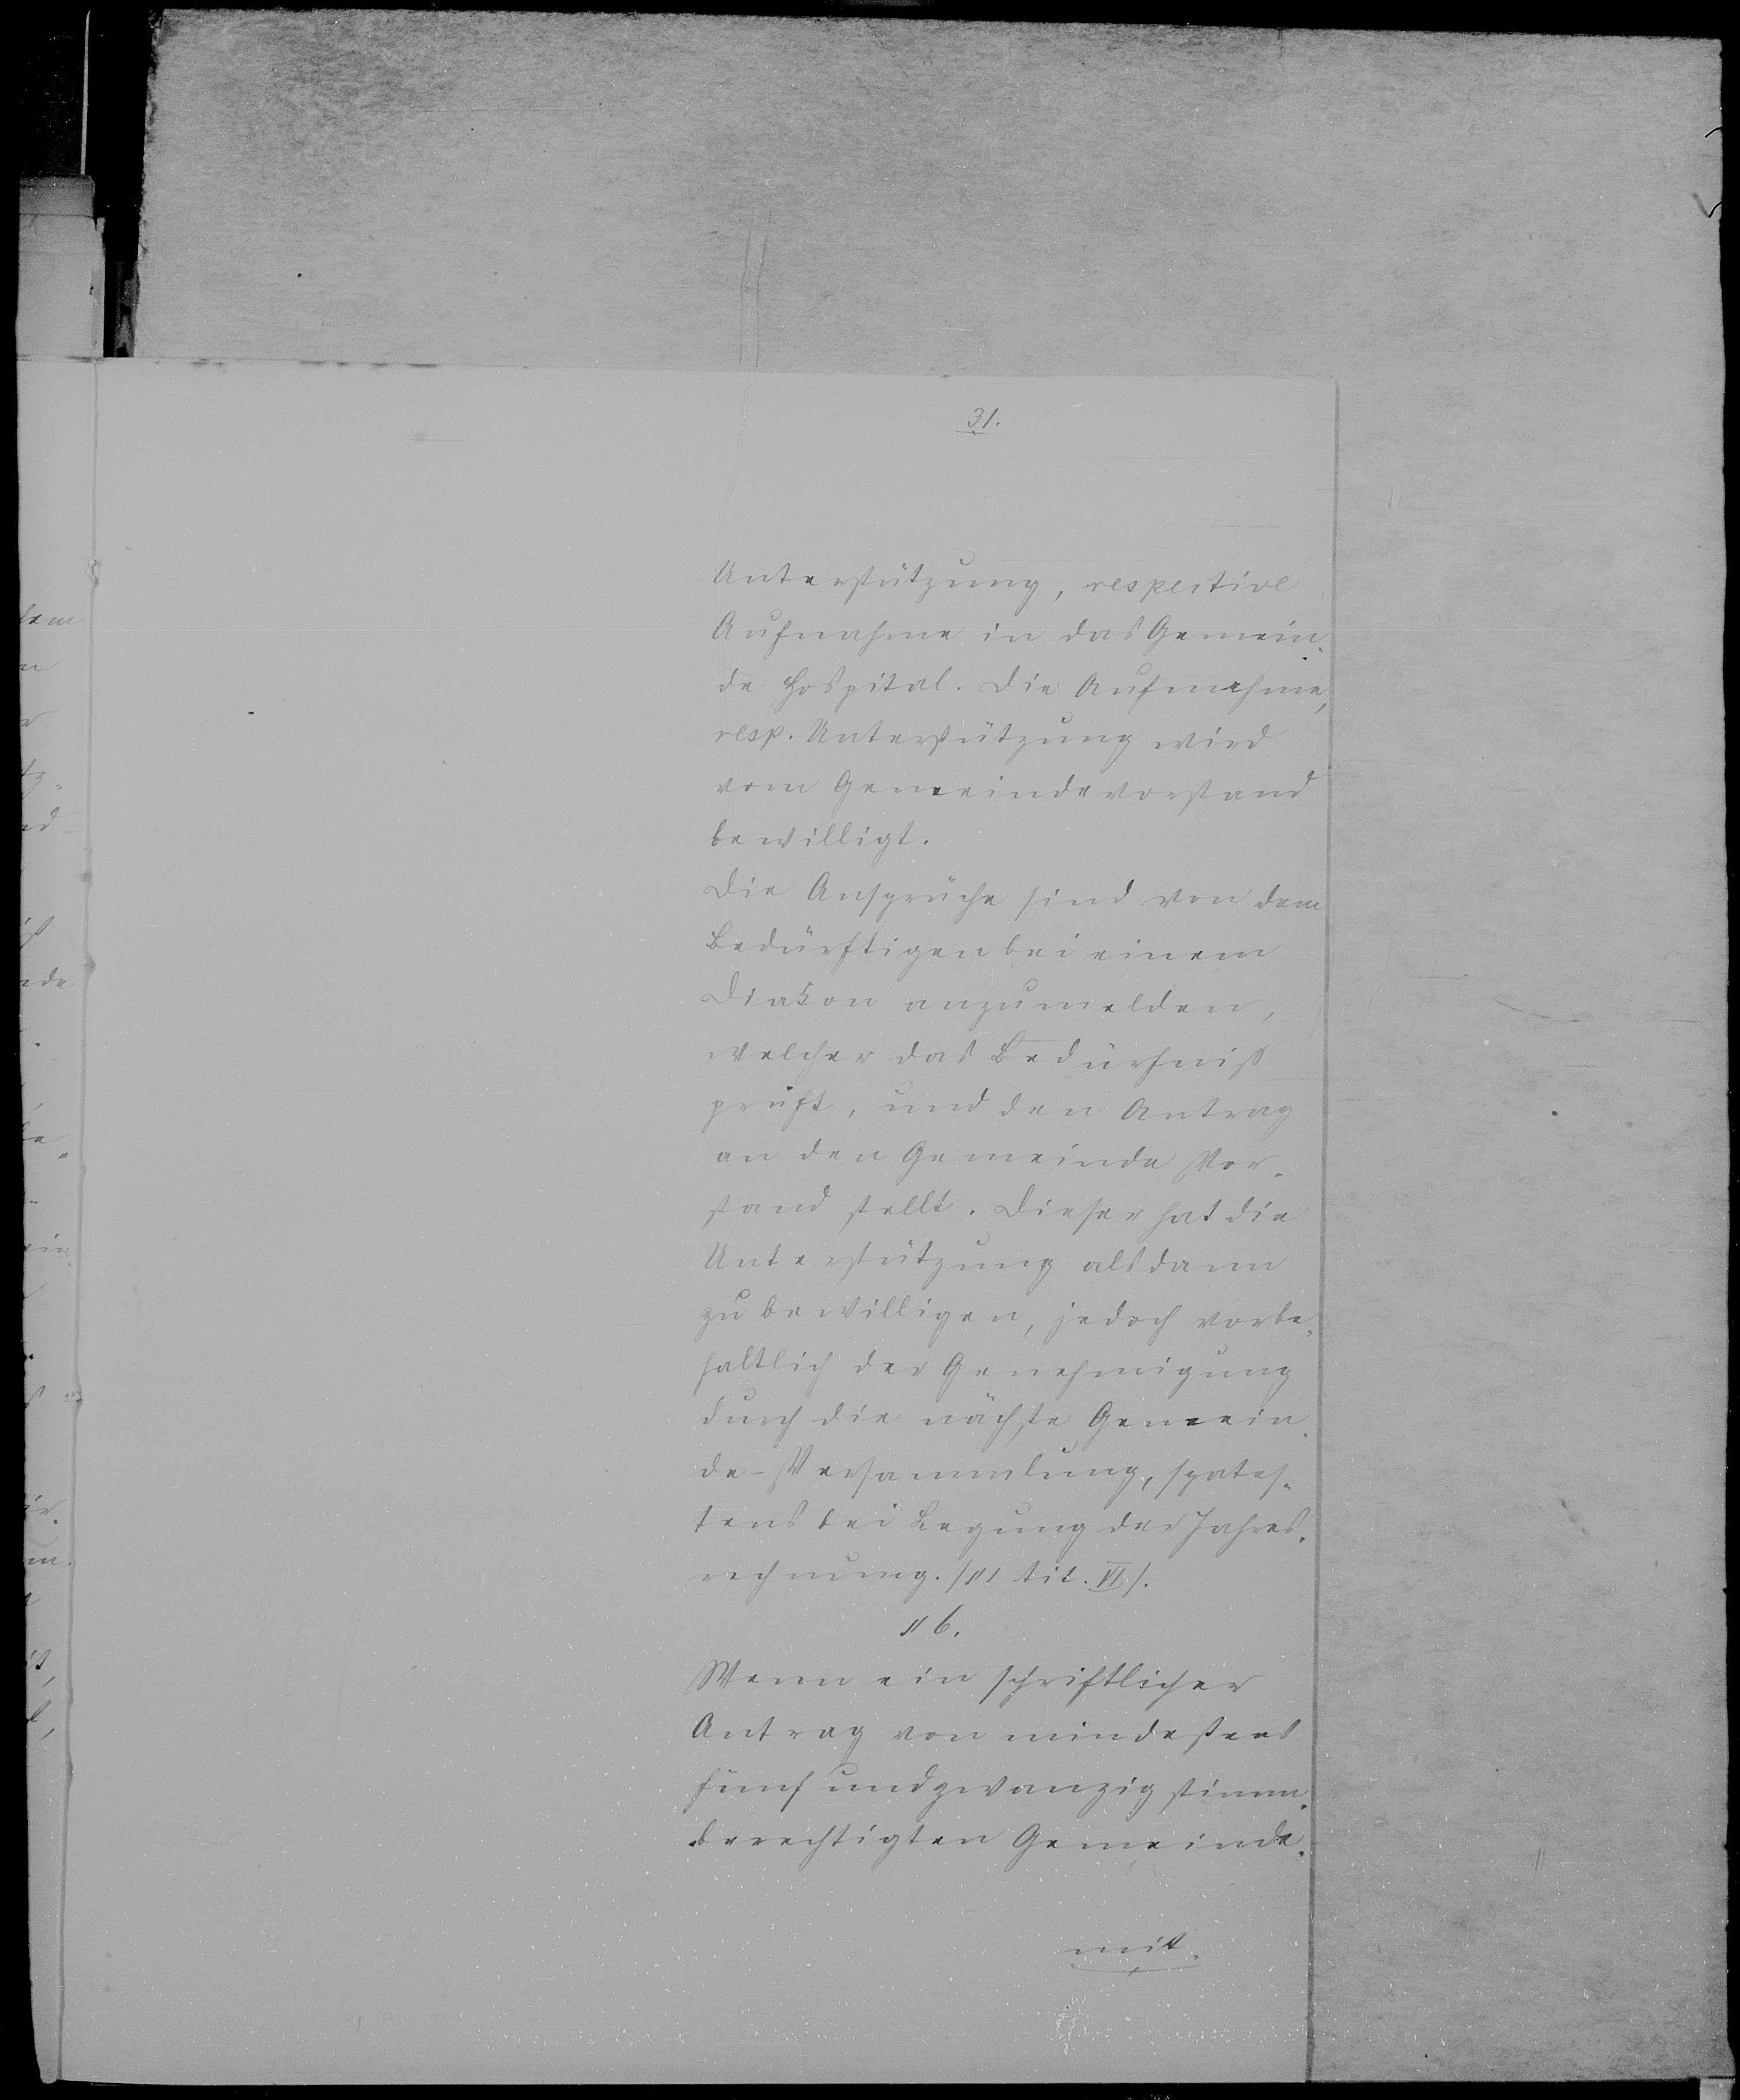 31.
Unterstützung, respective
Aufnahme in das Gemein-
de Hospital. Die Aufnahme,
resp. Unterstützung wird
vom Gemeindevorstand
bewilligt.
Die Ansprüche sind von dem
Bedürftigen bei einem
Diakon anzumelden,
welcher das Bedürfniß
prüft, und den Antrag
an den Gemeinde Vor-
stand stellt. Dieser hat die
Unterstützung alsdann
zu bewilligen, jedoch vorbe-
haltlich der Genehmigung
durch die nächste Gemein-
de-Versammlung, spates-
tens bei Legung der Jahres-
rechnung. /§ 1 tit. VI/.
§ 6.
Wenn ein schriftlicher
Antrag von mindestens
fünf und zwanzig stimm-
berechtigten Gemeinde-
mit-